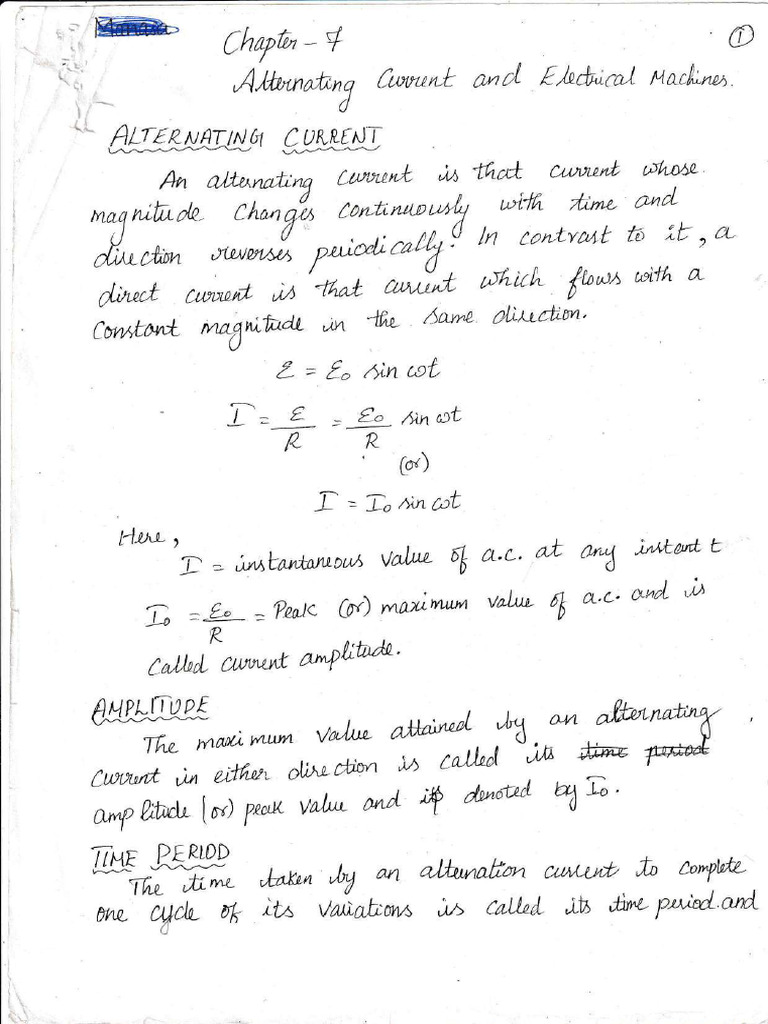 ①
Chapter - 7
Alternating Current and Electrical Machines.
ALTERNATING CURRENT
An alternating current is that current whose
magnitude changes continuously with time and
direction reverses periodically. In contrast to it, a
direct current is that current which flows with a
constant magnitude in the same direction.
ε = ε₀ sin ωt
I = ε/R = ε₀/R sin ωt
(or)
I = I₀ sin ωt
Here,
I = instantaneous value of a.c. at any instant t
I₀ = ε₀/R = Peak (or) maximum value of a.c. and is
called current amplitude.
AMPLITUDE
The maximum value attained by an alternating
current in either direction is called its time period
amplitude (or) peak value and is denoted by I₀.
TIME PERIOD
The time taken by an alternation current to complete
one cycle of its variations is called its time period.and